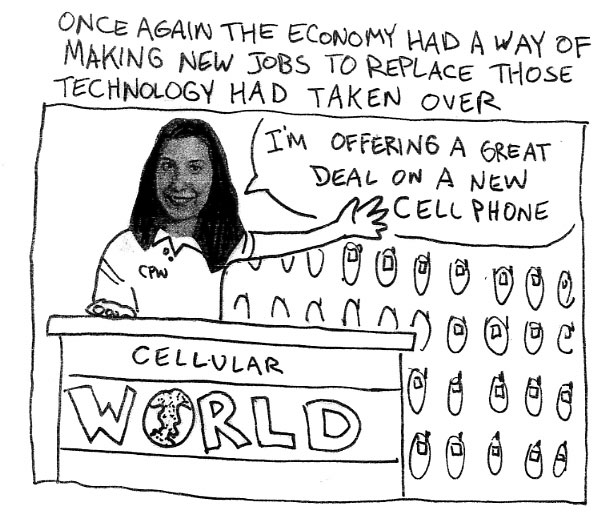 ONCE AGAIN THE ECONOMY HAD A WAY OF
MAKING NEW JOBS TO REPLACE THOSE
TECHNOLOGY HAD TAKEN OVER
I'M OFFERING A GREAT
DEAL ON A NEW
CELL PHONE
CPW
CELLULAR
WORLD